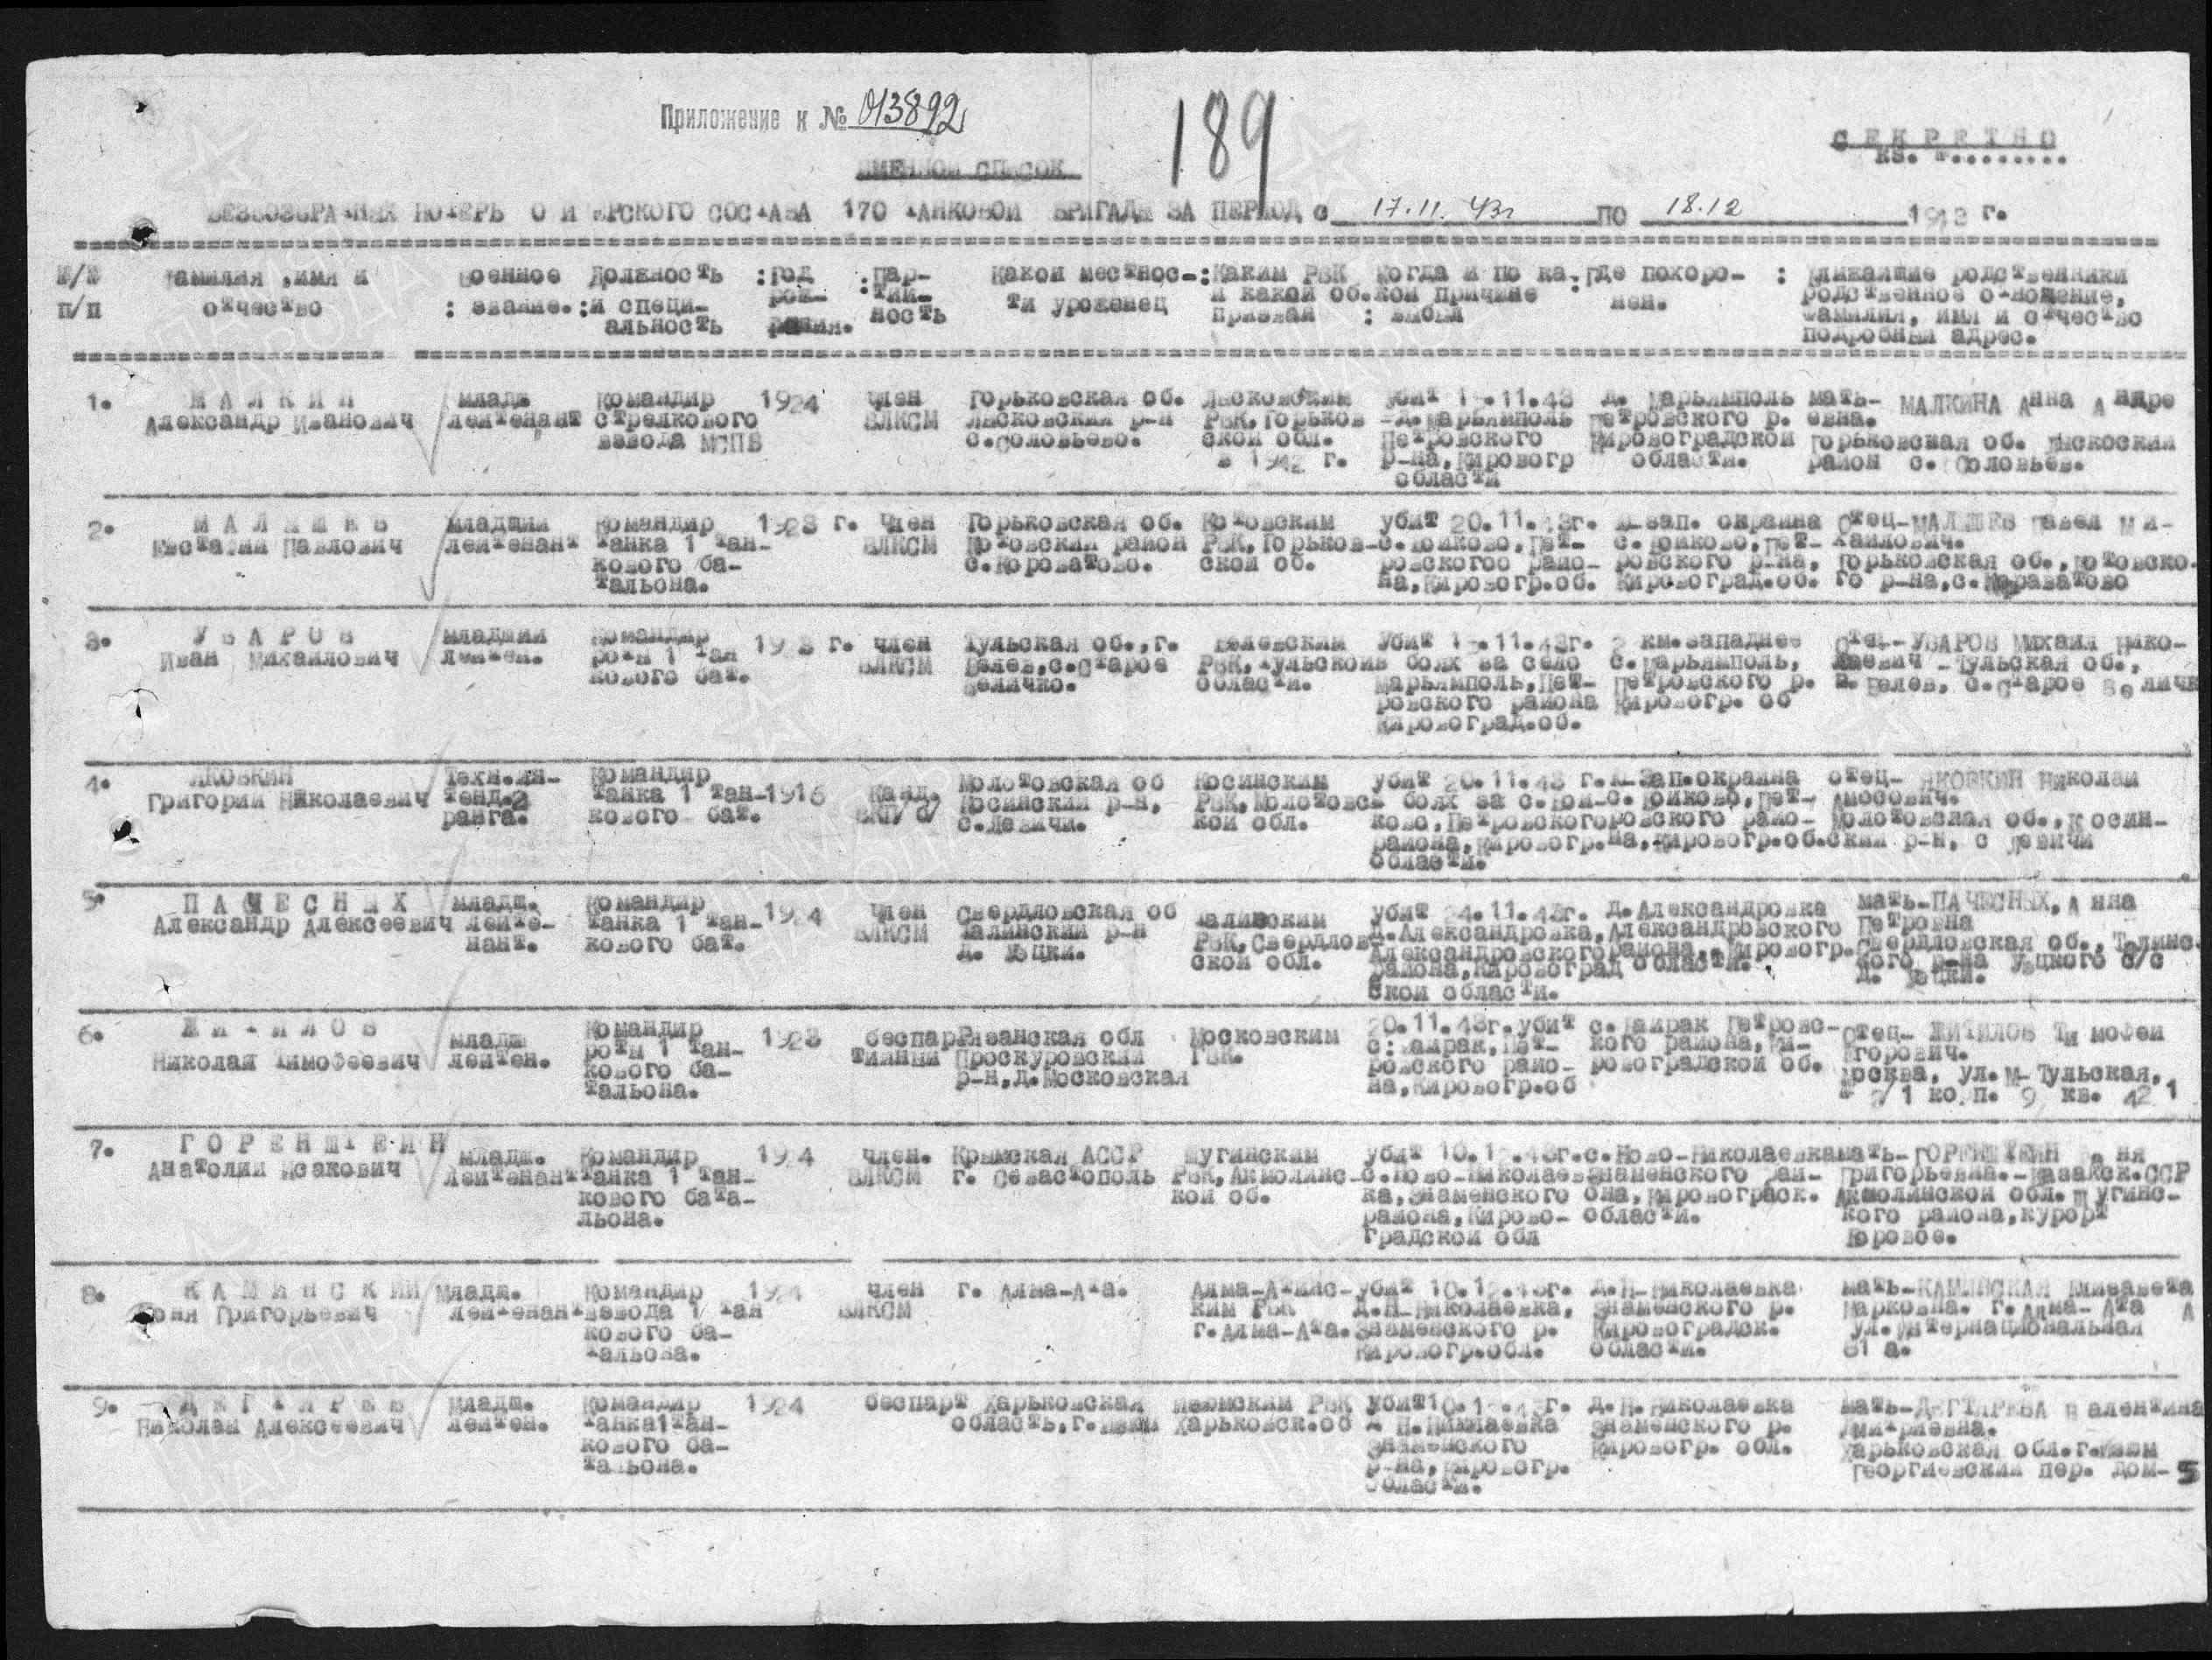 Приложение к № 013892
189
СЕКРЕТНО
ИМЕННОЙ СПИСОК
БЕЗВОЗВРАТНЫХ ПОТЕРЬ СОСТАВА 170 ТАНКОВОЙ БРИГАДЫ ЗА ПЕРИОД с 17.11.43г ПО 18.12 1943 г.
п/п
Фамилия, имя и отчество
Военное звание.
Должность и специальность
Год рождения.
Партийность
Какой местнос-
ти уроженец
Каким РВК
и какой об.
призван
Когда и по ка-
кой причине
выбыл
Где похоро-
нен.
Ближайшие родственники
родственное отношение,
фамилия, имя и отчество
подробный адрес.
1.
МАЛКИН
Александр Иванович
младш.
лейтенант
Командир
стрелкового
взвода МСПБ
1924
член
ВЛКСМ
Горьковская об.
Лысковский р-н
с.Соловьево.
Лысковским
РВК, Горьков
ской обл.
в 1942 г.
убит .11.43
д.Марьямполь
Петровского
р-на, Кировогр
области
д. Марьямполь
Петровского р.
Кировоградской
области.
мать- МАЛКИНА Анна Андре
евна.
Горьковская об. Лыскоский
район с. Соловьев.
2.
МАЛЫШЕВ
Евстафий Павлович
младший
лейтенант
Командир
танка 1 тан-
кового ба-
тальона.
1923 г.
член
ВЛКСМ
Горьковская об.
Котовский район
с.Короватово.
Котовским
РВК, Горьков-
ской об.
убит 20.11.43г.
с. , Пет-
ровскогоо райо-
на, Кировогр.об.
-зап. окраина
с. , Пет-
ровского р-на,
Кировоград.об.
Отец-МАЛЫШЕВ Павел Ми-
хайлович.
Горьковская об., Котовско-
го р-на, с.
3.
УВАРОВ
Иван Михайлович
младший
лейтен.
Командир
роты 1 тан
кового бат.
19 3 г.
член
ВЛКСМ
Тульская об., г.
Белев, с.Старое
Величко.
Белевским
РВК, Тульской
области.
Убит .11.43г.
в боях за село
Марьямполь, Пет-
ровского района
Кировоград.об.
км.западнее
с.Марьямполь,
Петровского р.
Кировогр. об
Отец-УВАРОВ Михаил Нико-
лаевич -Тульская об.,
г. Белев, с.Старое Величк
4.
ЯКОВКИН
Григорий Николаевич
Техн.ин-
тенд.2
ранга.
Командир
танка 1 тан-
кового бат.
1916
Канд.
ВКП/б/
Молотовская об
Косинский р-н,
с.Левичи.
Косинским
РВК, Молотовс-
кой обл.
убит 20.11.43 г.
в боях за с.
Петровского
района, Кировогр.
области.
-Зап.окраина
Пет-
ровского райо-
на, Кировогр.об.
отец- ЯКОВКИН Николай
Амосович.
Молотовская об., Косин-
ский р-н, с Левичи
5
ПАЧЕСНЫХ
Александр Алексеевич
младш.
лейте-
нант.
Командир
танка 1 тан-
кового бат.
1924
Член
ВЛКСМ
Свердловская об
Талинский р-н
д.
Талинским
РВК, Свердлов-
ской обл.
убит 24.11.43г.
д.Александровка,
Александровского
района, Кировоград
ской области.
д.Александровка
Александровского
района, Кировогр.
области.
мать-ПАЧЕСНЫХ, Анна
Петровна
Свердловская об., Талинс-
кого р-на с/с
д.
6.
ЖИТИЛОВ
Николай Тимофеевич
младш
лейтен.
Командир
роты 1 тан-
кового ба-
тальона.
1923
беспар
тийный
Рязанская обл
Проскуровский
р-н, д.Московская
Московским
ГВК.
20.11.43г. убит
с. Байрак, Пет-
ровского райо-
на, Кировогр.об
с.Байрак Петровс-
кого района, Ки-
ровоградской об.
Отец- ЖИТИЛОВ Тимофей
Егорович.
Москва, ул. М-Тульская,
2/1 кв.
7.
ГОРЕНШТЕЙН
Анатолий Исакович
младш.
лейтенант
Командир
танка 1 тан-
кового бата-
льона.
1924
член.
ВЛКСМ
Крымская АССР
г. Севастополь
Щучинским
РВК, Акмолинс-
кой об.
убит 10.12.43г.
с.Ново-Николаев-
ка, Знаменского
района, Кирово-
градской обл
с.Ново-Николаевка
Знаменского рай-
она, Кировоградск.
области.
мать-ГОРЕНШТЕЙН
Григорьевна.-Казакск.ССР
Акмолинской обл.
кого района, курорт
Боровое.
8.
КАМИНСКИЙ
Григорьевич
Младш.
лейтенант
Командир
взвода 1 тан
кового ба-
тальона.
1924
член
ВЛКСМ
г. Алма-Ата.
Алма-Атинс-
ким РВК
г.Алма-Ата.
убит 10.12.43г.
д.Н-Николаевка,
Знаменского р.
Кировогр.обл.
д.Н-Николаевка
Знаменского р.
Кировоградск.
области.
мать-КАМИНСКАЯ Елизавета
Марковна. г.Алма-Ата
ул.Интернациональная
61 а.
9.
ДЕГТЯРЕВ
Николай Алексеевич
Младш.
лейтен.
Командир
танка1тан-
кового ба-
тальона.
1924
беспарт
Харьковская
область, г.Изюм
Изюмским РВК
Харьковск.об
Убит10.12.43г.
Н.Николаевка
Знаменского
р-на, Кировогр.
области.
д.Н.Николаевка
Знаменского р.
Кировогр. обл.
мать-ДЕГТЯРЕВА Валентина
Дмитриевна.
Харьковская обл.г.Изюм
Георгиевский пер. дом-5